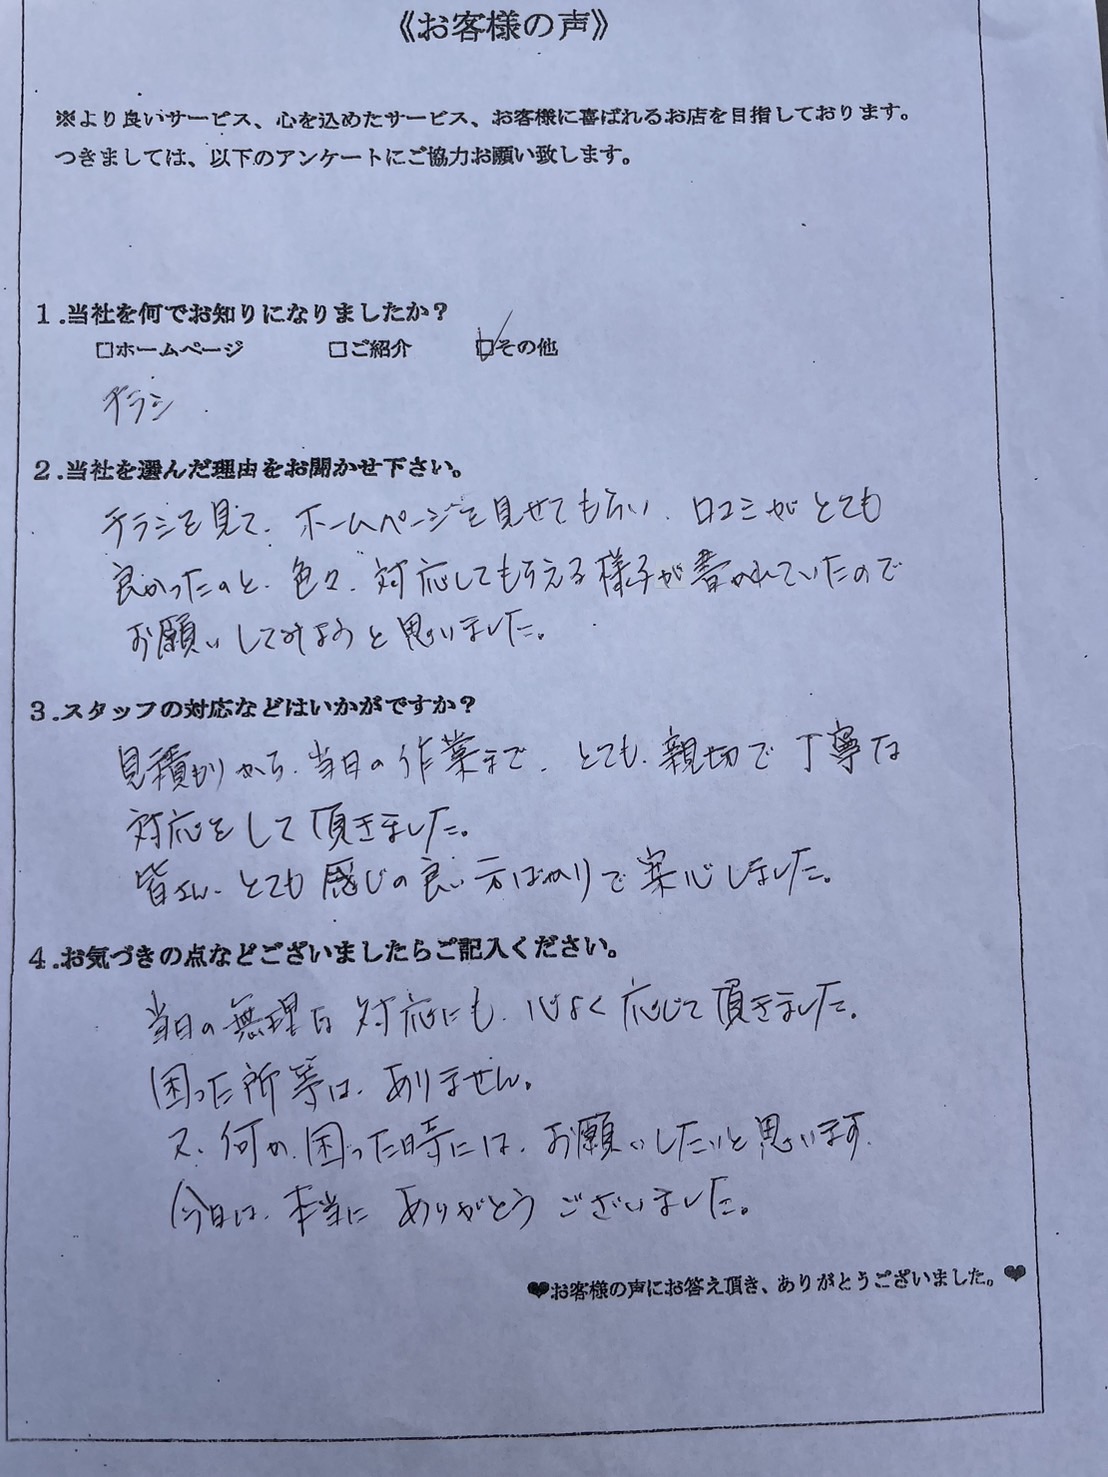 《お客様の声》
※より良いサービス、心を込めたサービス、お客様に喜ばれるお店を目指しております。
つきましては、以下のアンケートにご協力お願い致します。
１.当社を何でお知りになりましたか？
□ホームページ □ご紹介 ☑その他
チラシ
２.当社を選んだ理由をお聞かせ下さい。
チラシを見て、ホームページを見せてもらい、口コミがとても
良かったのと、色々、対応してもらえる様子が書かれていたので
お願いしてみようと思いました。
３.スタッフの対応などはいかがですか？
見積りから、当日の作業まで、とても、親切で丁寧な
対応をして頂きました。
皆さん、とても感じの良い方ばかりで安心しました。
４.お気づきの点などございましたらご記入ください。
当日の無理な対応にも、心よく応じて頂きました。
困った所等は、ありません。
又、何か、困った時には、お願いしたいと思います。
今日は、本当にありがとうございました。
♥お客様の声にお答え頂き、ありがとうございました。♥